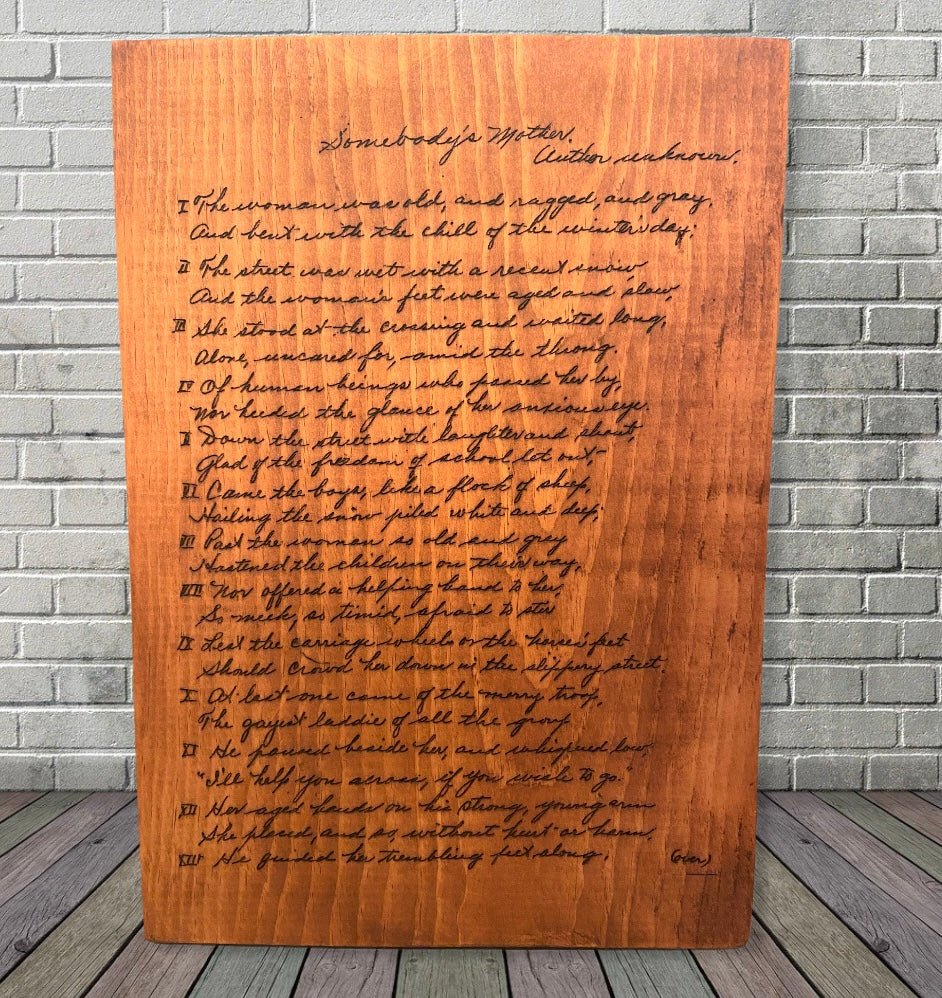 Somebody's Mother.
Author unknown.
I The woman was old, and ragged, and gray,
And bent with the chill of the winter's day;
II The street was wet with a recent snow,
And the woman's feet were aged and slow,
III She stood at the crossing and waited long,
Alone, uncared for, amid the throng.
IV Of human beings who passed her by,
Nor heeded the glance of her anxious eye.
V Down the street with laughter and shout,
Glad of the freedom of school let out,-
VI Came the boys, like a flock of sheep,
Hailing the snow piled white and deep;
VII Past the woman so old and grey
Hastened the children on their way,
VIII Nor offered a helping hand to her,
So meek, so timid, afraid to stir
IX Lest the carriage wheels or the horse's feet
Should crowd her down in the slippery street.
X At last one came of the merry troop,
The gayest laddie of all the group
XI He paused beside her, and whispered low,
"I'll help you across, if you wish to go."
XII Her aged hands on his strong, young arm
She placed, and so, without hurt or harm,
XIII He guided her trembling feet along, (over)